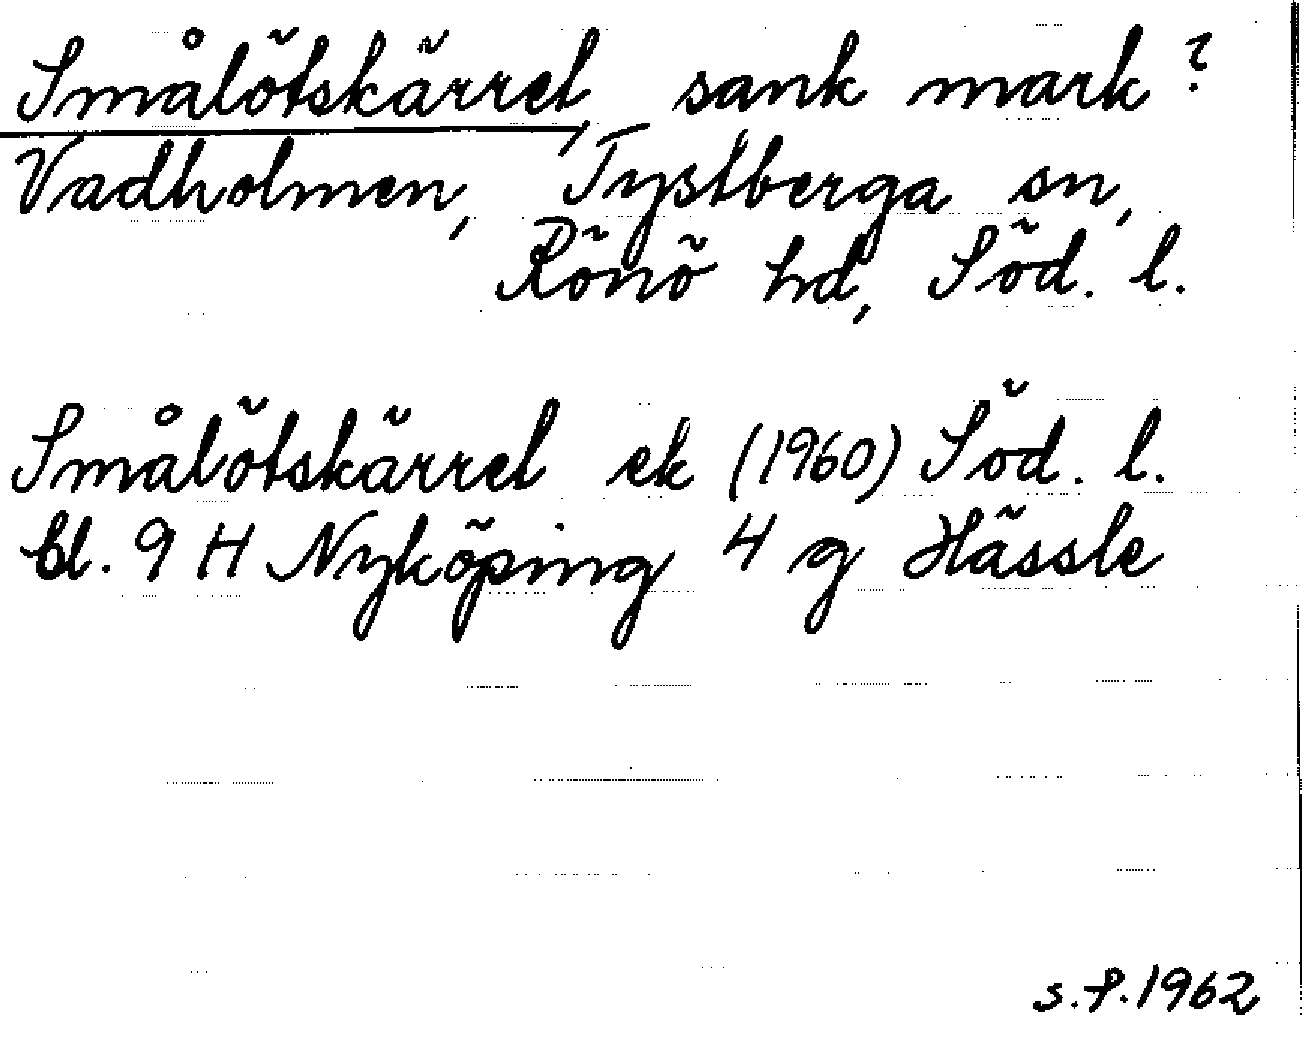 Smålötskärret, sank mark?
Vadholmen, Tystberga sn,
Rönö hd, Söd. l.
Smålötskärret ek (1960) Söd. l.
bl. 9 H Nyköping 4 g Hässle
s.f. 1962